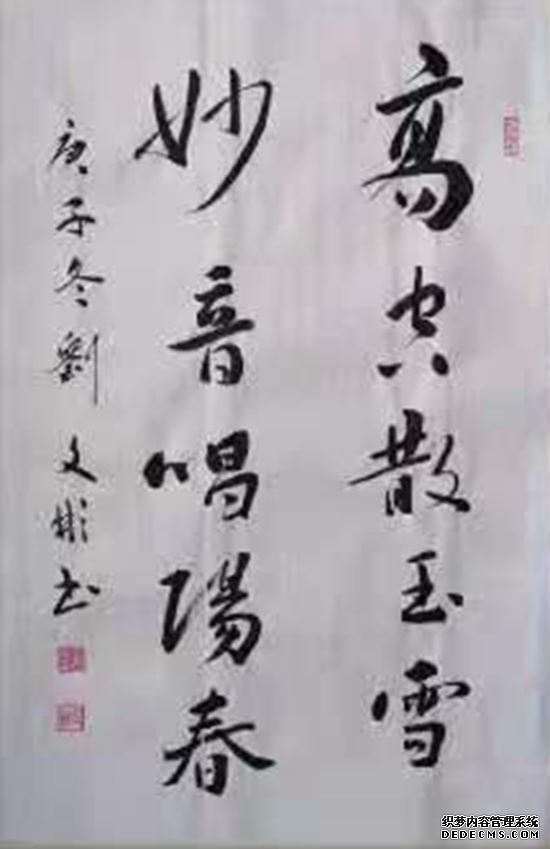 高空散玉雪
妙音唱陽春
庚子冬劉文彬书
织梦内容管理系统
DEDECMS.COM